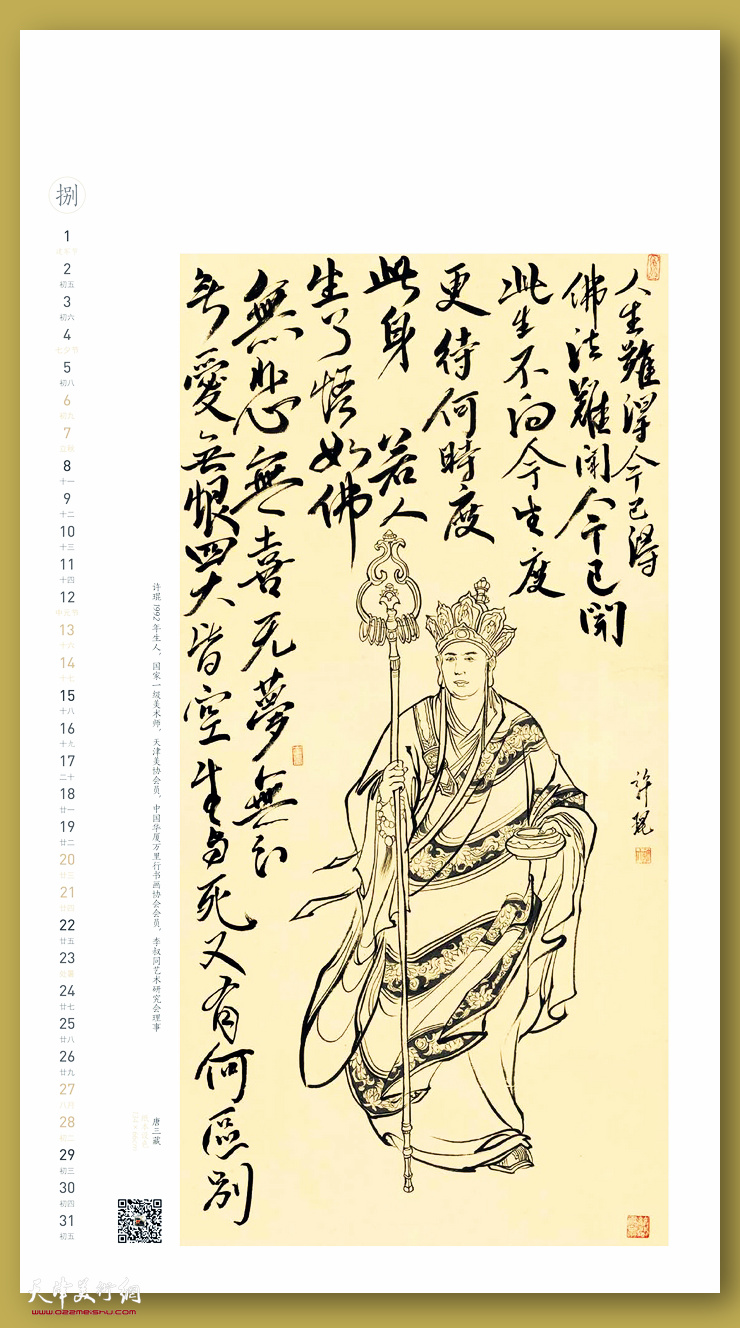 捌
1
2
初五
3
初六
4
七夕节
5
初八
6
初九
7
立秋
8
十一
9
十二
10
十三
11
十四
12
中元节
13
十六
14
十七
15
十八
16
十九
17
二十
18
廿一
19
廿二
20
廿三
21
廿四
22
廿五
23
处暑
24
廿七
25
廿八
26
廿九
27
八月
28
初二
29
初三
30
初四
31
初五
人生難得今已得
佛法難聞今已聞
此生不向今生度
更待何時度
此身 若人
生了悟如佛
無悲無喜无夢無幻
無愛無恨四大皆空生与死又有何區别
許琨
许琨1992年生人，国家一级美术师，天津美协会员，中国华厦万里行书画协会会员，李叔同艺术研究会理事
唐三藏
天津美术網
www.022meishu.com